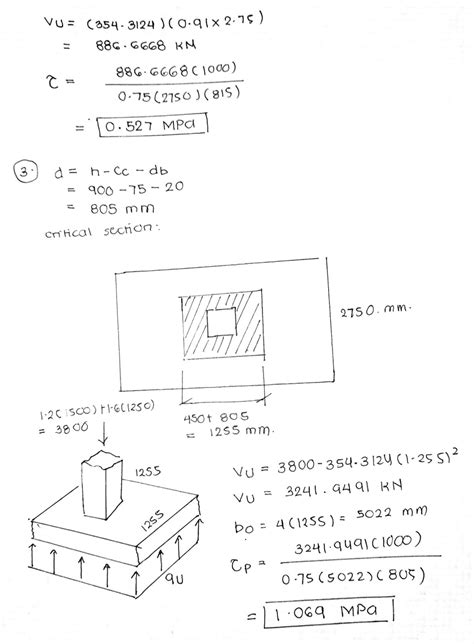 Vu = (354.3124)(0.91 x 2.75)
= 886.6668 KN
τ = 886.6668(1000)
0.75(2750)(815)
= 0.527 MPa
3. d = h - Cc - db
= 900 - 75 - 20
= 805 mm
critical section:
2750. mm.
1.2(1500)+1.6(1250)
= 3800
450+ 805
= 1255 mm.
1255
1255
qu
Vu = 3800-354.3124(1.255)²
Vu = 3241.9491 KN
bo = 4(1255) = 5022 mm
τp = 3241.9491(1000)
0.75(5022)(805)
= 1.069 MPa